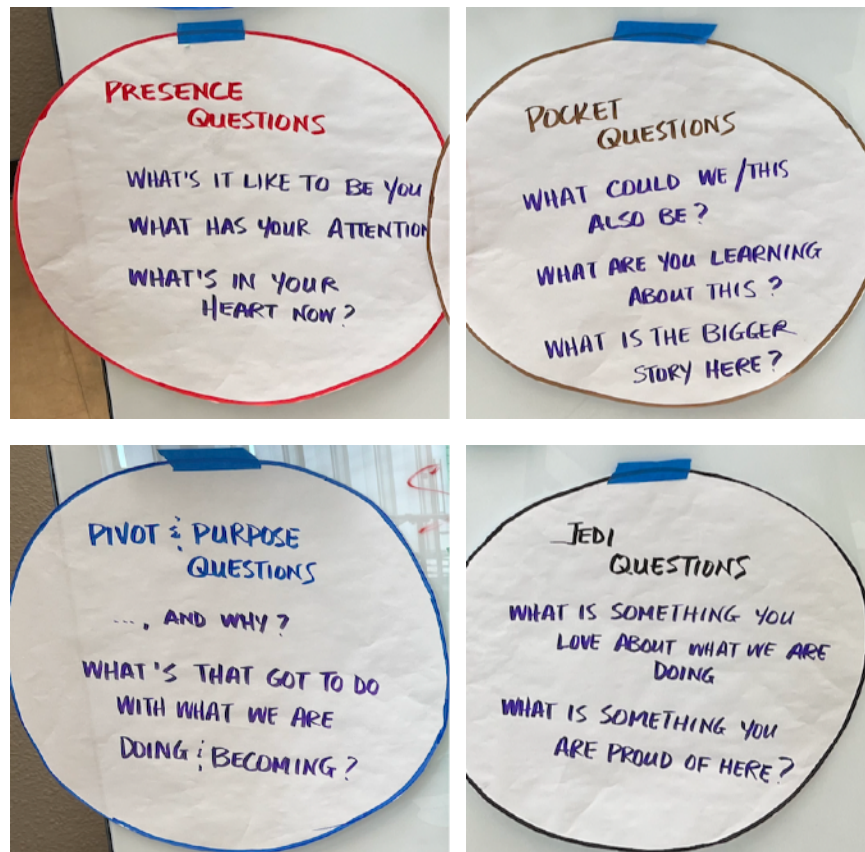 PRESENCE
QUESTIONS
WHAT'S IT LIKE TO BE YOU
WHAT HAS YOUR ATTENTION
WHAT'S IN YOUR
HEART NOW?
POCKET
QUESTIONS
WHAT COULD WE/THIS
ALSO BE?
WHAT ARE YOU LEARNING
ABOUT THIS?
WHAT IS THE BIGGER
STORY HERE?
PIVOT & PURPOSE
QUESTIONS
...., AND WHY?
WHAT'S THAT GOT TO DO
WITH WHAT WE ARE
DOING & BECOMING?
JEDI
QUESTIONS
WHAT IS SOMETHING YOU
LOVE ABOUT WHAT WE ARE
DOING
WHAT IS SOMETHING YOU
ARE PROUD OF HERE?